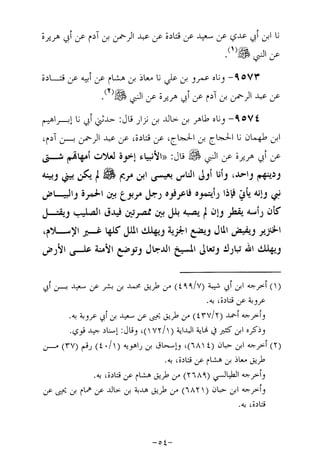 نا ابن أبي عدي عن سعيد عن قتادة عن عبد الرحمن بن آدم عن أبي هريرة
عن النبي ﷺ(١).
٩٥٧٣- وناه عمرو بن علي نا معاذ بن هشام عن أبيه عن قتــادة
عن عبد الرحمن بن آدم عن أبي هريرة عن النبي ﷺ(٢).
٩٥٧٤- وناه طاهر بن خالد بن نزار قال: حدثني أبي نا إبــراهيم
ابن طهمان نا الحجاج بن الحجاج، عن قتادة، عن عبد الرحمن بــن آدم،
عن أبي هريرة عن النبي ﷺ قال: «الأنبياء إخوة لعلات أمهاتهم شــتى
ودينهم واحد، وأنا أولى الناس بعيسى ابن مريم ﷺ لم يكن بيني وبينه
نبي وإنه يأتي فإذا رأيتموه فاعرفوه رجل مربوع بين الحمرة والبيــاض
كأن رأسه يقطر وإن لم يصبه بلل بين ممصرتين فيدق الصليب ويقتــل
الخنزير ويفيض المال ويضع الجزية ويهلك الملل كلها غــير الإســلام،
ويهلك الله تبارك وتعالى المسيخ الدجال وتوضع الأمنة علــى الأرض
(١) أخرجه ابن أبي شيبة (٤٩٩/٧) من طريق محمد بن بشر عن سعيد بــن أبي
عروبة عن قتادة، به.
وأخرجه أحمد (٤٣٧/٢) من طريق يحيى عن سعيد بن أبي عروبة به.
وذكره ابن كثير في نهاية البداية (١٧٢/١)، وقال: إسناد جيد قوي.
(٢) أخرجه ابن حبان (٦٨١٤)، وإسحاق بن راهويه (٤٠/١) رقم (٣٧) مــن
طريق معاذ بن هشام عن قتادة، به.
وأخرجه الطيالسي (٢٦٨٩) من طريق هشام عن قتادة، به.
وأخرجه ابن حبان (٦٨٢١) من طريق هدبة بن خالد عن همام بن يحيى عن
قتادة، به.
-٥٤-